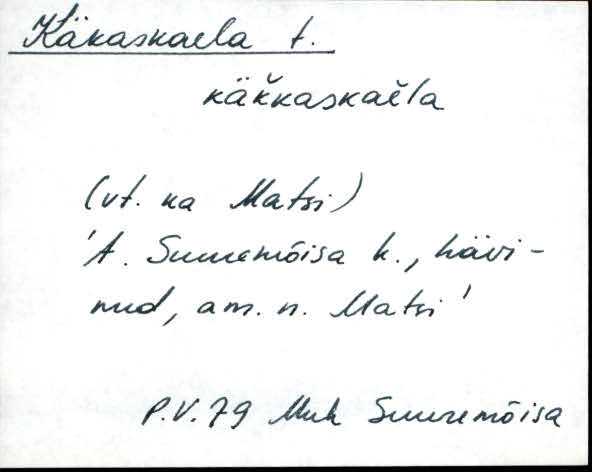 Käkaskaela t.
käk̆kaskaĕla
(vt. ka Matsi)
't. Suuremõisa k., hävi-
nud, am. n. Matsi'
P.V.79 Muh Suuremõisa